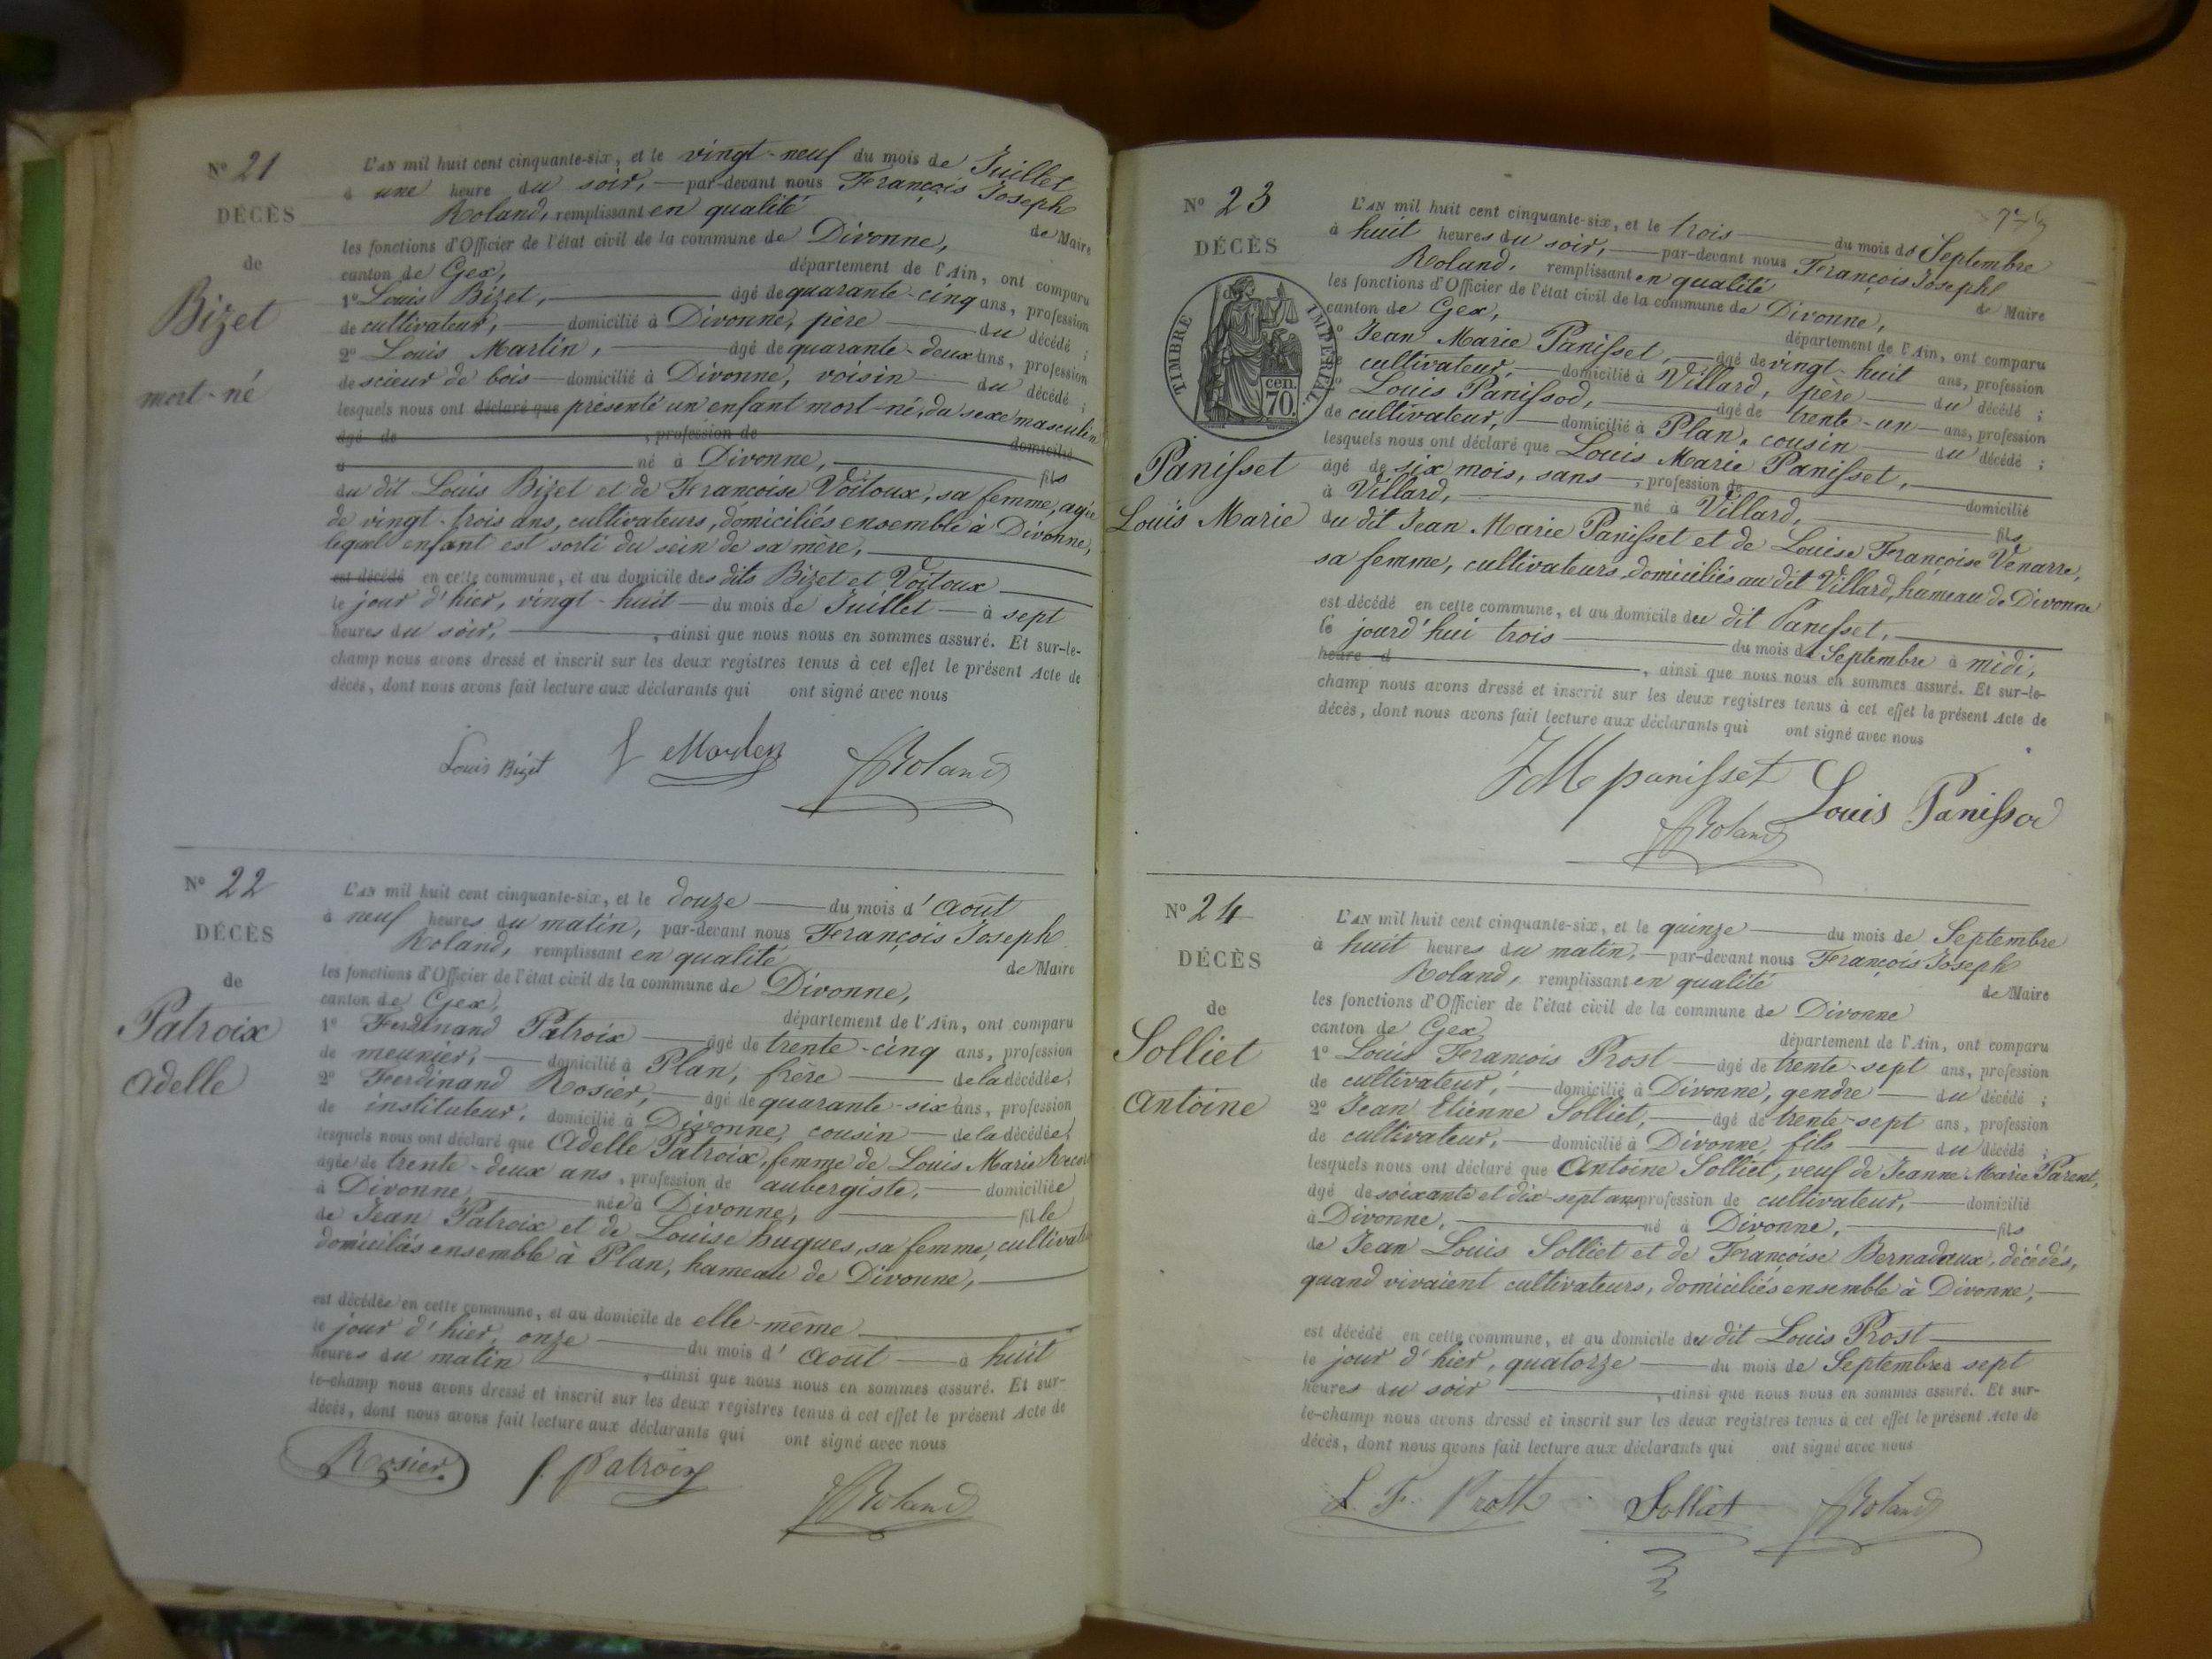 Nº 21
DÉCÈS
de
Bizet
mort-né
L'AN mil huit cent cinquante-six, et le vingt-neuf du mois de Juillet
à une heure du soir, par-devant nous François Joseph
Roland, remplissant en qualité de Maire
les fonctions d'Officier de l'état civil de la commune de Divonne,
canton de Gex, département de l'Ain, ont comparu
1º Louis Bizet, âgé de quarante-cinq ans, profession
de cultivateur, domicilié à Divonne, père du décédé ;
2º Louis Martin, âgé de quarante-deux ans, profession
de scieur de bois domicilié à Divonne, voisin du décédé ;
lesquels nous ont déclaré que présenté un enfant mort-né, du sexe masculin
âgé de , profession de domicilié
à né à Divonne, fils
du dit Louis Bizet et de Françoise Voitoux, sa femme, agée
de vingt-trois ans, cultivateurs, domiciliés ensemble à Divonne,
lequel enfant est sorti du sein de sa mère,
est décédé en cette commune, et au domicile des dits Bizet et Voitoux
le jour d'hier, vingt-huit du mois de Juillet à sept
heures du soir, , ainsi que nous nous en sommes assuré. Et sur-le-
champ nous avons dressé et inscrit sur les deux registres tenus à cet effet le présent Acte de
décès, dont nous avons fait lecture aux déclarants qui ont signé avec nous
Louis Bizet
Roland
Nº 22
DÉCÈS
de
Patroix
Adelle
L'AN mil huit cent cinquante-six, et le douze du mois d'Août
à neuf heures du matin, par-devant nous François Joseph
Roland, remplissant en qualité de Maire
les fonctions d'Officier de l'état civil de la commune de Divonne,
canton de Gex, département de l'Ain, ont comparu
1º Ferdinand Patroix âgé de trente-cinq ans, profession
de meunier, domicilié à Plan, frère de la décédée;
2º Ferdinand Rosier, âgé de quarante-six ans, profession
de instituteur, domicilié à Divonne, cousin de la décédée;
lesquels nous ont déclaré que Adelle Patroix, femme de Louis Marie
âgée de trente-deux ans, profession de aubergiste, domiciliée
à Divonne, née à Divonne, fille
de Jean Patroix et de Louise hugues, sa femme, cultivate
domiciliés ensemble à Plan, hameau de Divonne,
est décédée en cette commune, et au domicile de elle-même
le jour d'hier, onze du mois d'Août à huit
heures du matin , ainsi que nous nous en sommes assuré. Et sur-
le-champ nous avons dressé et inscrit sur les deux registres tenus à cet effet le présent Acte de
décès, dont nous avons fait lecture aux déclarants qui ont signé avec nous
Rosier f. Patroix Roland
Nº 23
DÉCÈS
de
TIMBRE IMPÉRIAL
70 cen.
Panisset
Louis Marie
L'AN mil huit cent cinquante-six, et le trois du mois de Septembre
à huit heures du soir, par-devant nous François Joseph
Roland, remplissant en qualité de Maire
les fonctions d'Officier de l'état civil de la commune de Divonne,
canton de Gex, département de l'Ain, ont comparu
1º Jean Marie Panisset, âgé de vingt-huit ans, profession
de cultivateur, domicilié à Villard, père du décédé ;
2º Louis Panissod, âgé de trente-un ans, profession
de cultivateur, domicilié à Plan, cousin du décédé ;
lesquels nous ont déclaré que Louis Marie Panisset,
âgé de six mois, sans , profession de domicilié
à Villard, né à Villard, fils
du dit Jean Marie Panisset et de Louise Françoise Venarre,
sa femme, cultivateurs, domiciliés au dit Villard, hameau de Divonne
est décédé en cette commune, et au domicile du dit Panisset,
le jourd'hui trois du mois de Septembre à midi,
heure d , ainsi que nous nous en sommes assuré. Et sur-le-
champ nous avons dressé et inscrit sur les deux registres tenus à cet effet le présent Acte de
décès, dont nous avons fait lecture aux déclarants qui ont signé avec nous
JM panisset Louis Panissod
Roland
Nº 24
DÉCÈS
de
Solliet
Antoine
L'AN mil huit cent cinquante-six, et le quinze du mois de Septembre
à huit heures du matin, par-devant nous François Joseph
Roland, remplissant en qualité de Maire
les fonctions d'Officier de l'état civil de la commune de Divonne
canton de Gex, département de l'Ain, ont comparu
1º Louis François Prost âgé de trente-sept ans, profession
de cultivateur, domicilié à Divonne, gendre du décédé ;
2º Jean Etienne Solliet, âgé de trente-sept ans, profession
de cultivateur, domicilié à Divonne, fils du décédé ;
lesquels nous ont déclaré que Antoine Solliet, veuf de Jeanne Marie Parent,
âgé de soixante et dix-sept ans profession de cultivateur, domicilié
à Divonne, né à Divonne, fils
de Jean Louis Solliet et de Françoise Bernadaux, décédés,
quand vivaient cultivateurs, domiciliés ensemble à Divonne,
est décédé en cette commune, et au domicile du dit Louis Prost
le jour d'hier, quatorze du mois de Septembre à sept
heures du soir , ainsi que nous nous en sommes assuré. Et sur-
le-champ nous avons dressé et inscrit sur les deux registres tenus à cet effet le présent Acte de
décès, dont nous avons fait lecture aux déclarants qui ont signé avec nous
L. F. Solliet Roland